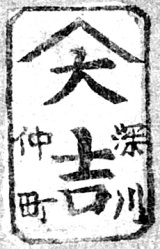 大吉
深川
仲町